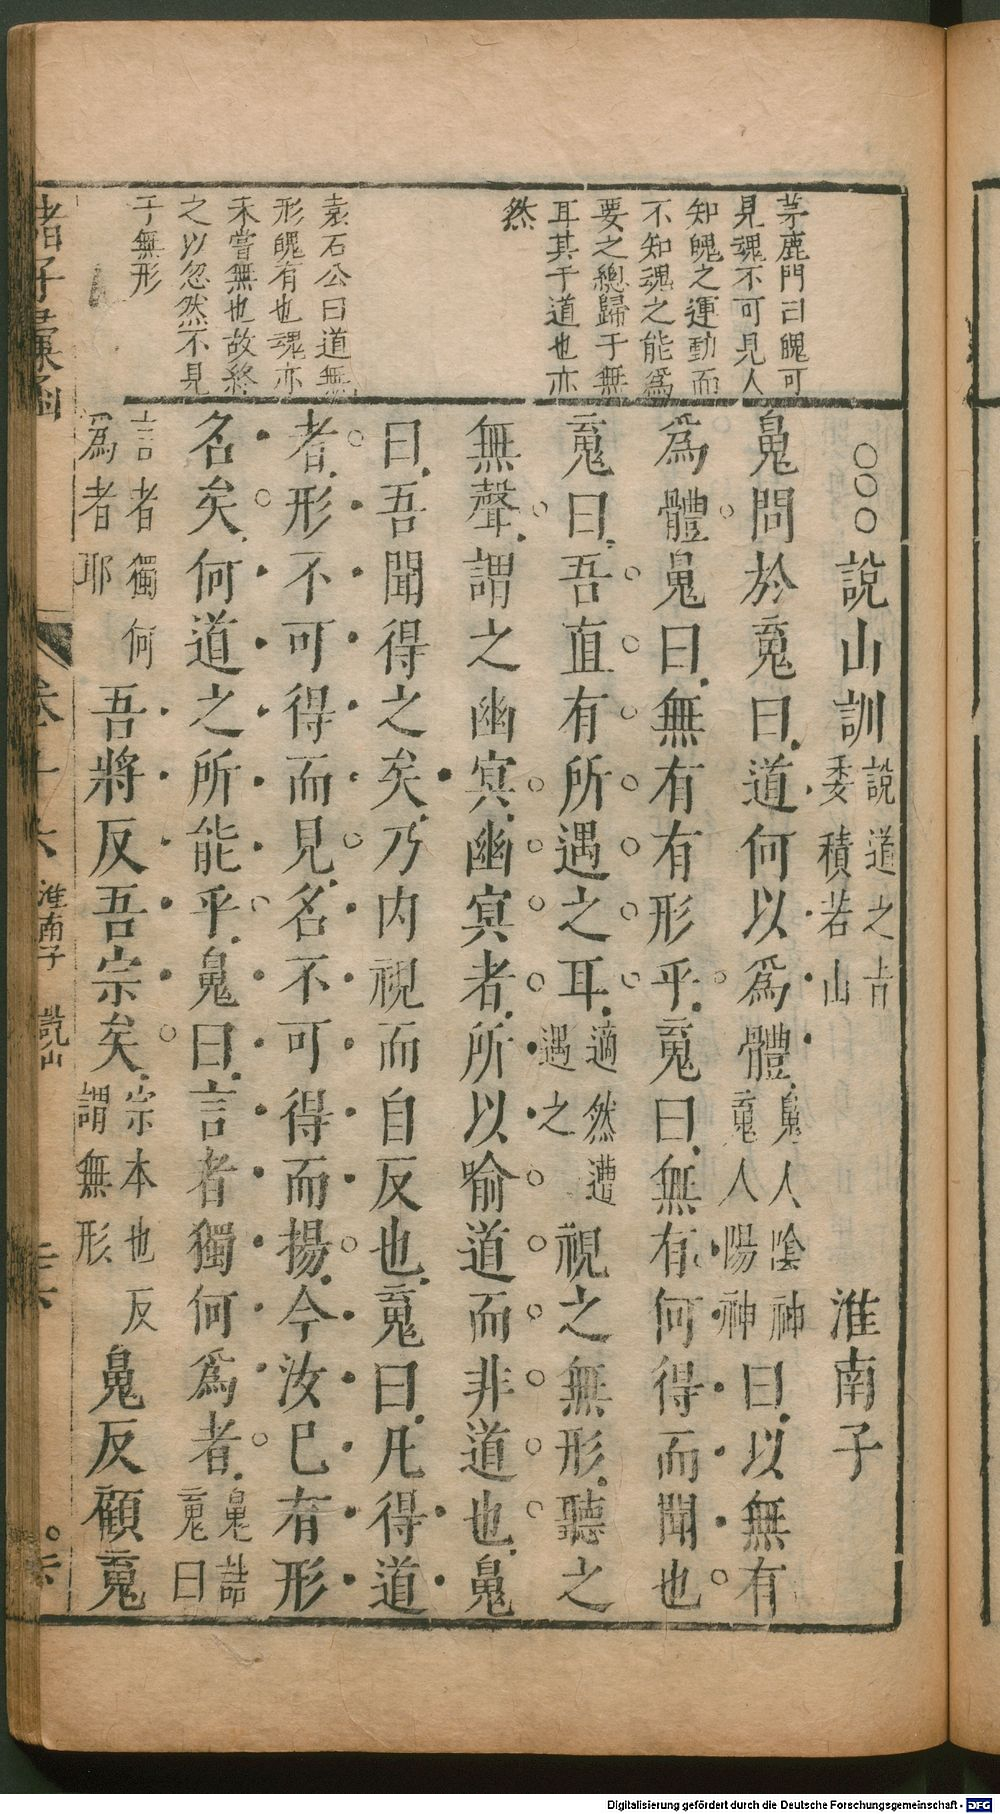 茅鹿門曰魄可
見魂不可見人
知魄之運動而
不知魂之能爲
要之總歸于無
耳其于道也亦
然
袁石公曰道無
形魄有也魂亦
未嘗無也故終
之以忽然不見
于無形
○○○說山訓 說道之旨 委積若山 淮南子
鬽問於䰟曰道何以爲體 鬽人陰神 䰟人陽神 曰以無有
爲體鬽曰無有有形乎䰟曰無有何得而聞也
䰟曰吾直有所遇之耳 適然遭 遇之 視之無形聽之
無聲謂之幽冥幽冥者所以喻道而非道也鬽
曰吾聞得之矣乃内視而自反也䰟曰凡得道
者形不可得而見名不可得而揚今汝已有形
名矣何道之所能乎鬽曰言者獨何爲者 鬽詰 䰟曰
言者獨何 爲者耶 吾將反吾宗矣 宗本也反 謂無形 鬽反顧䰟
諸子彙函 卷十六 淮南子 說山
Digitalisierung gefördert durch die Deutsche Forschungsgemeinschaft - DFG